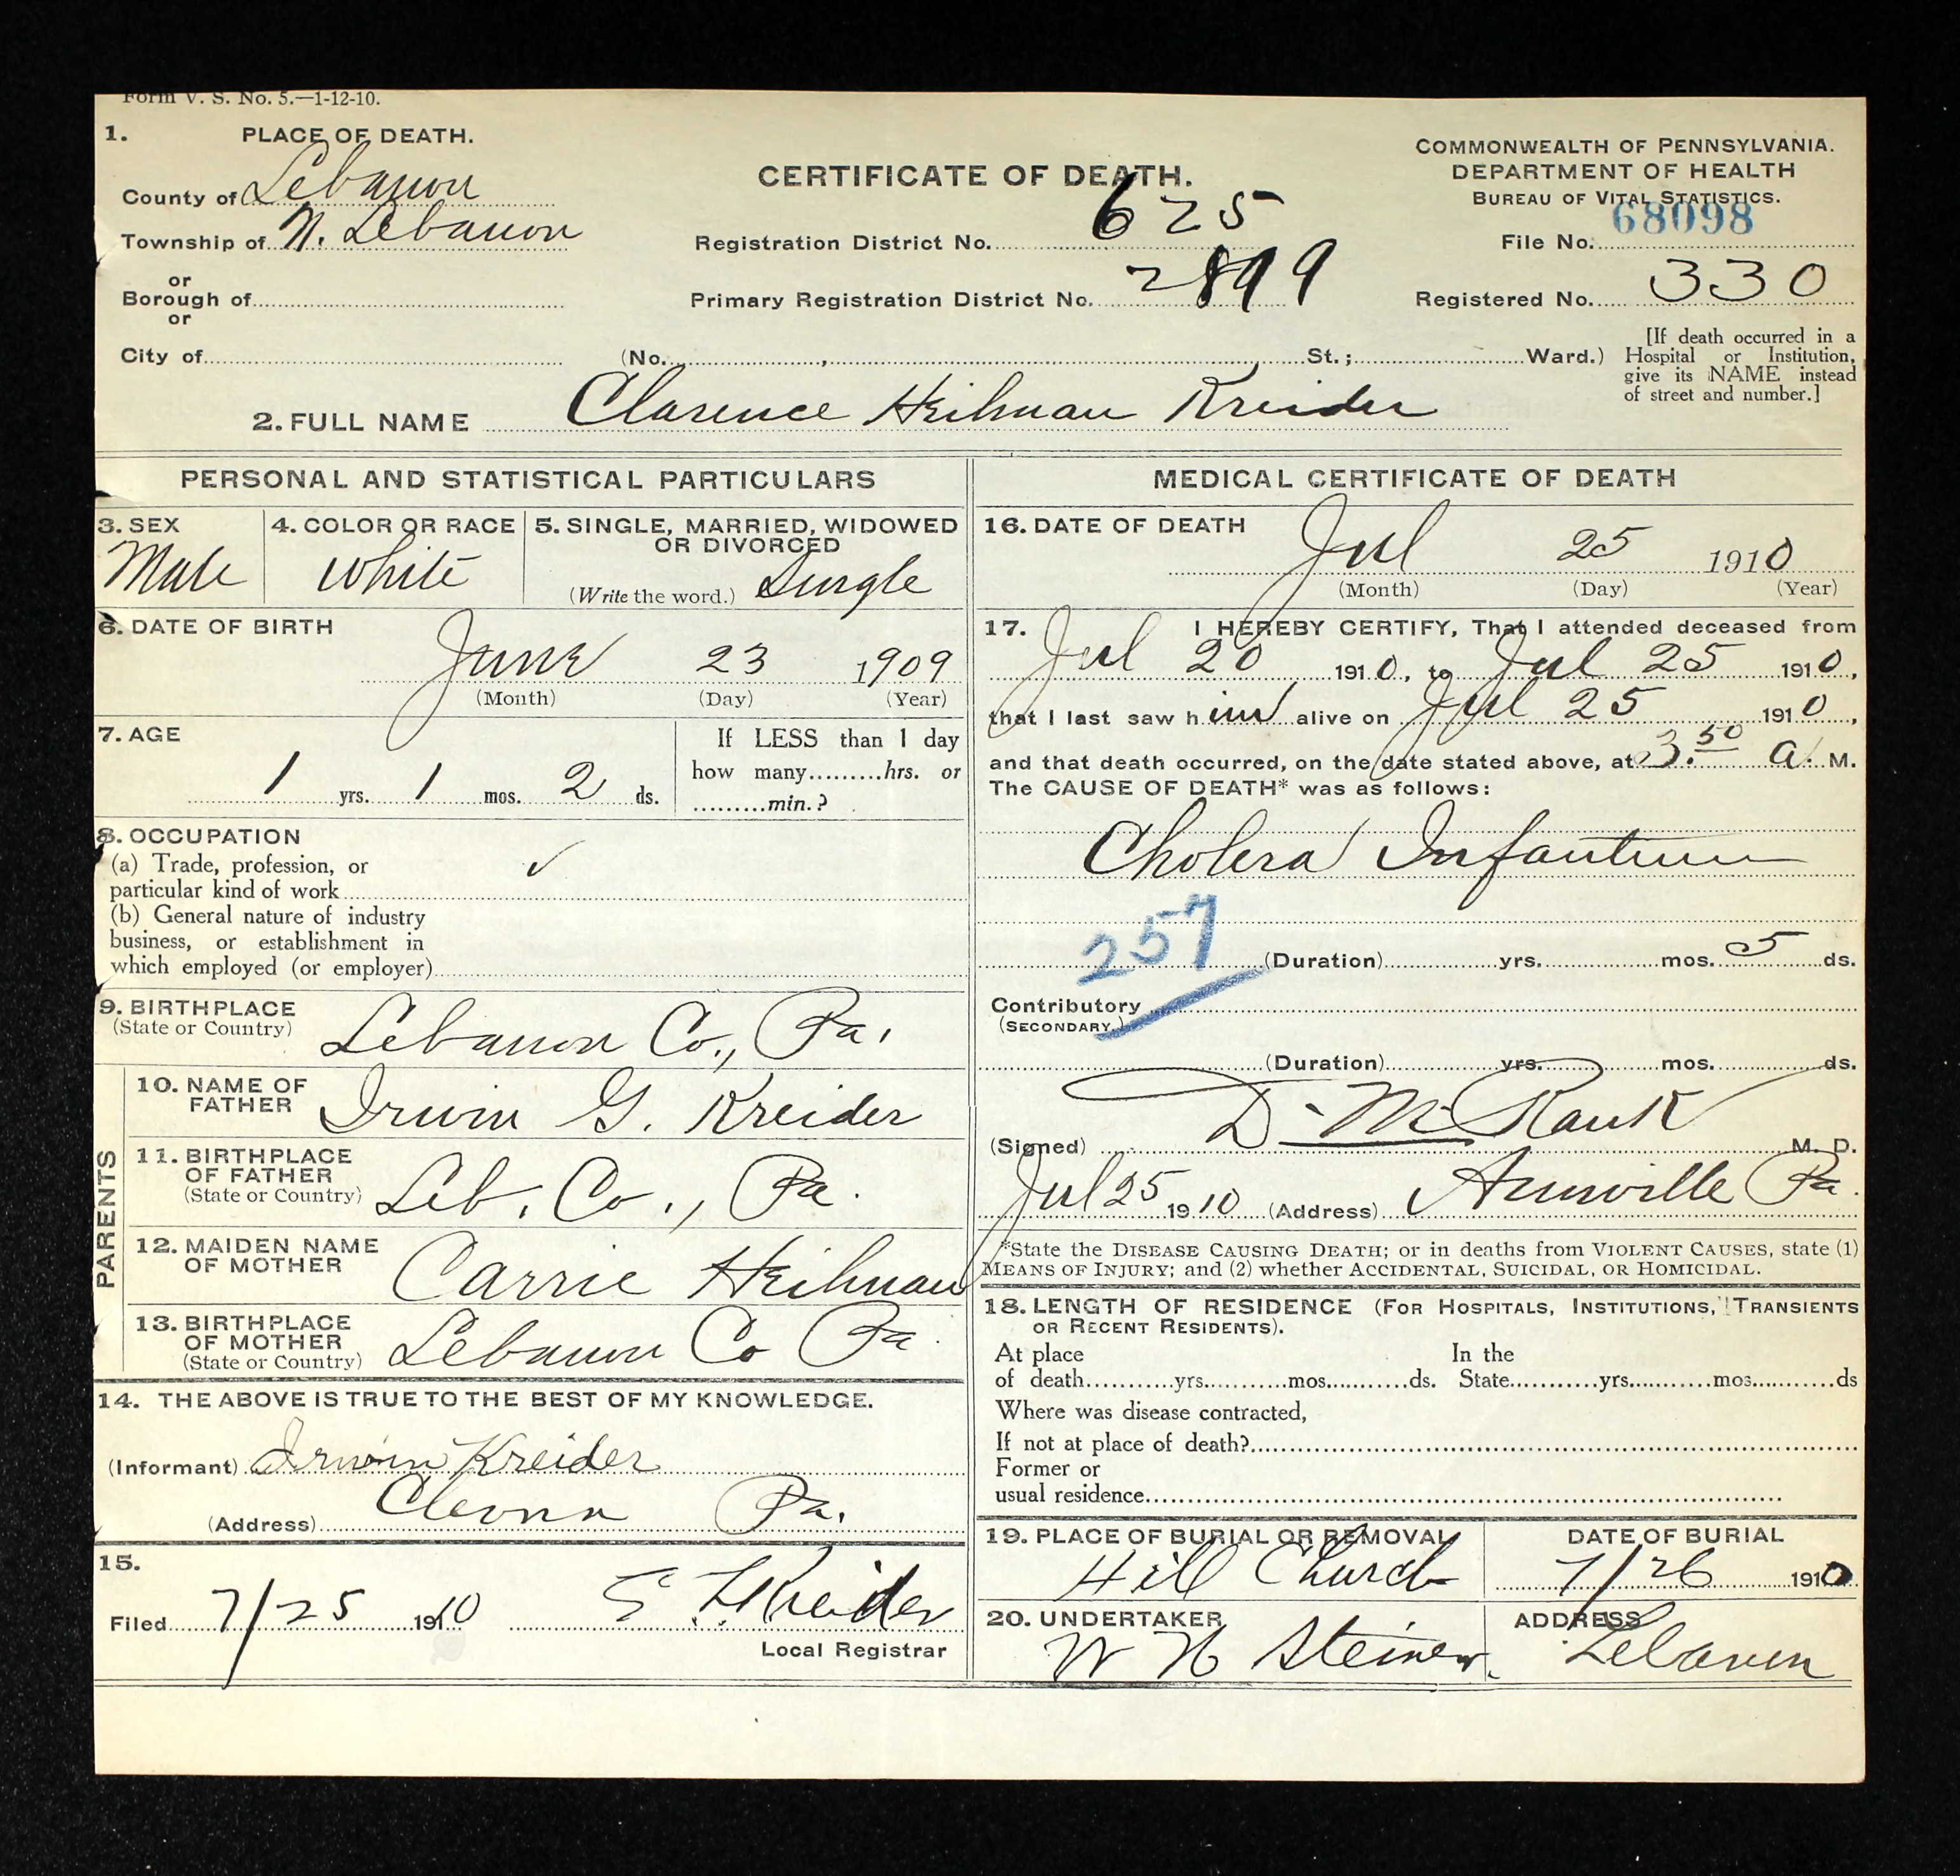 Form V. S. No. 5.—1-12-10.
1. PLACE OF DEATH.
County of Lebanon
Township of N. Lebanon
or
Borough of
or
City of
CERTIFICATE OF DEATH.
Registration District No. 625
Primary Registration District No. 2899
(No. , St.; Ward.)
COMMONWEALTH OF PENNSYLVANIA.
DEPARTMENT OF HEALTH
BUREAU OF VITAL STATISTICS.
File No. 68098
Registered No. 330
[If death occurred in a
Hospital or Institution,
give its NAME instead
of street and number.]
2. FULL NAME Clarence Heilman Kreider
PERSONAL AND STATISTICAL PARTICULARS
3. SEX
Male
4. COLOR OR RACE
White
5. SINGLE, MARRIED, WIDOWED
OR DIVORCED
(Write the word.) Single
6. DATE OF BIRTH
June 23 1909
(Month) (Day) (Year)
7. AGE
1 yrs. 1 mos. 2 ds.
If LESS than 1 day
how many hrs. or
min.?
8. OCCUPATION
(a) Trade, profession, or
particular kind of work ✓
(b) General nature of industry
business, or establishment in
which employed (or employer)
9. BIRTHPLACE
(State or Country) Lebanon Co., Pa.
PARENTS
10. NAME OF
FATHER Irwin G. Kreider
11. BIRTHPLACE
OF FATHER
(State or Country) Leb. Co., Pa.
12. MAIDEN NAME
OF MOTHER Carrie Heilman
13. BIRTHPLACE
OF MOTHER
(State or Country) Lebanon Co Pa.
14. THE ABOVE IS TRUE TO THE BEST OF MY KNOWLEDGE.
(Informant) Irwin Kreider
(Address) Cleona Pa.
15.
Filed 7/25 1910 Kreider
Local Registrar
MEDICAL CERTIFICATE OF DEATH
16. DATE OF DEATH
Jul 25 1910
(Month) (Day) (Year)
17. I HEREBY CERTIFY, That I attended deceased from
Jul 20 1910, to Jul 25 1910,
that I last saw him alive on Jul 25 1910,
and that death occurred, on the date stated above, at 3.50 a. M.
The CAUSE OF DEATH* was as follows:
Cholera Infantum
257
(Duration) yrs. mos. 5 ds.
Contributory
(SECONDARY)
(Duration) yrs. mos. ds.
(Signed) D. M. Rank M. D.
Jul 25 1910 (Address) Annville Pa.
*State the DISEASE CAUSING DEATH; or in deaths from VIOLENT CAUSES, state (1)
MEANS OF INJURY; and (2) whether ACCIDENTAL, SUICIDAL, OR HOMICIDAL.
18. LENGTH OF RESIDENCE (FOR HOSPITALS, INSTITUTIONS, TRANSIENTS
OR RECENT RESIDENTS).
At place In the
of death yrs. mos. ds. State yrs. mos. ds
Where was disease contracted,
If not at place of death?
Former or
usual residence
19. PLACE OF BURIAL OR REMOVAL
Hill Church
DATE OF BURIAL
7/26 1910
20. UNDERTAKER
W H Steiner.
ADDRESS
Lebanon